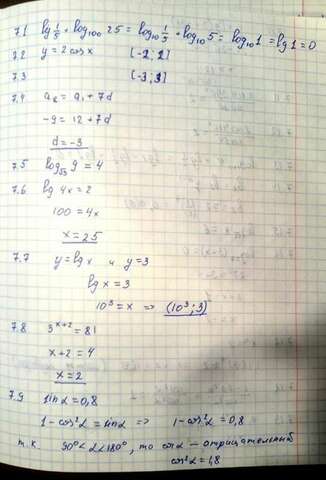 7.1 lg 1/5 + log₁₀₀ 25 = log₁₀ 1/5 + log₁₀ 5 = log₁₀ 1 = lg 1 = 0
7.2 y = 2 cos x [-2; 2]
7.3 [-3; 3]
7.4 a₈ = a₁ + 7d
-9 = 12 + 7d
d = -3
7.5 log√3 9 = 4
7.6 lg 4x = 2
100 = 4x
x = 25
7.7 y = lg x и y = 3
lg x = 3
10³ = x => (10³; 3)
7.8 3ˣ⁺² = 81
x + 2 = 4
x = 2
7.9 sin α = 0,8
1 - cos²α = sin α => 1 - cos²α = 0,8
т.к. 90° < α < 180°, то cos α - отрицательный
cos²α = 1,8